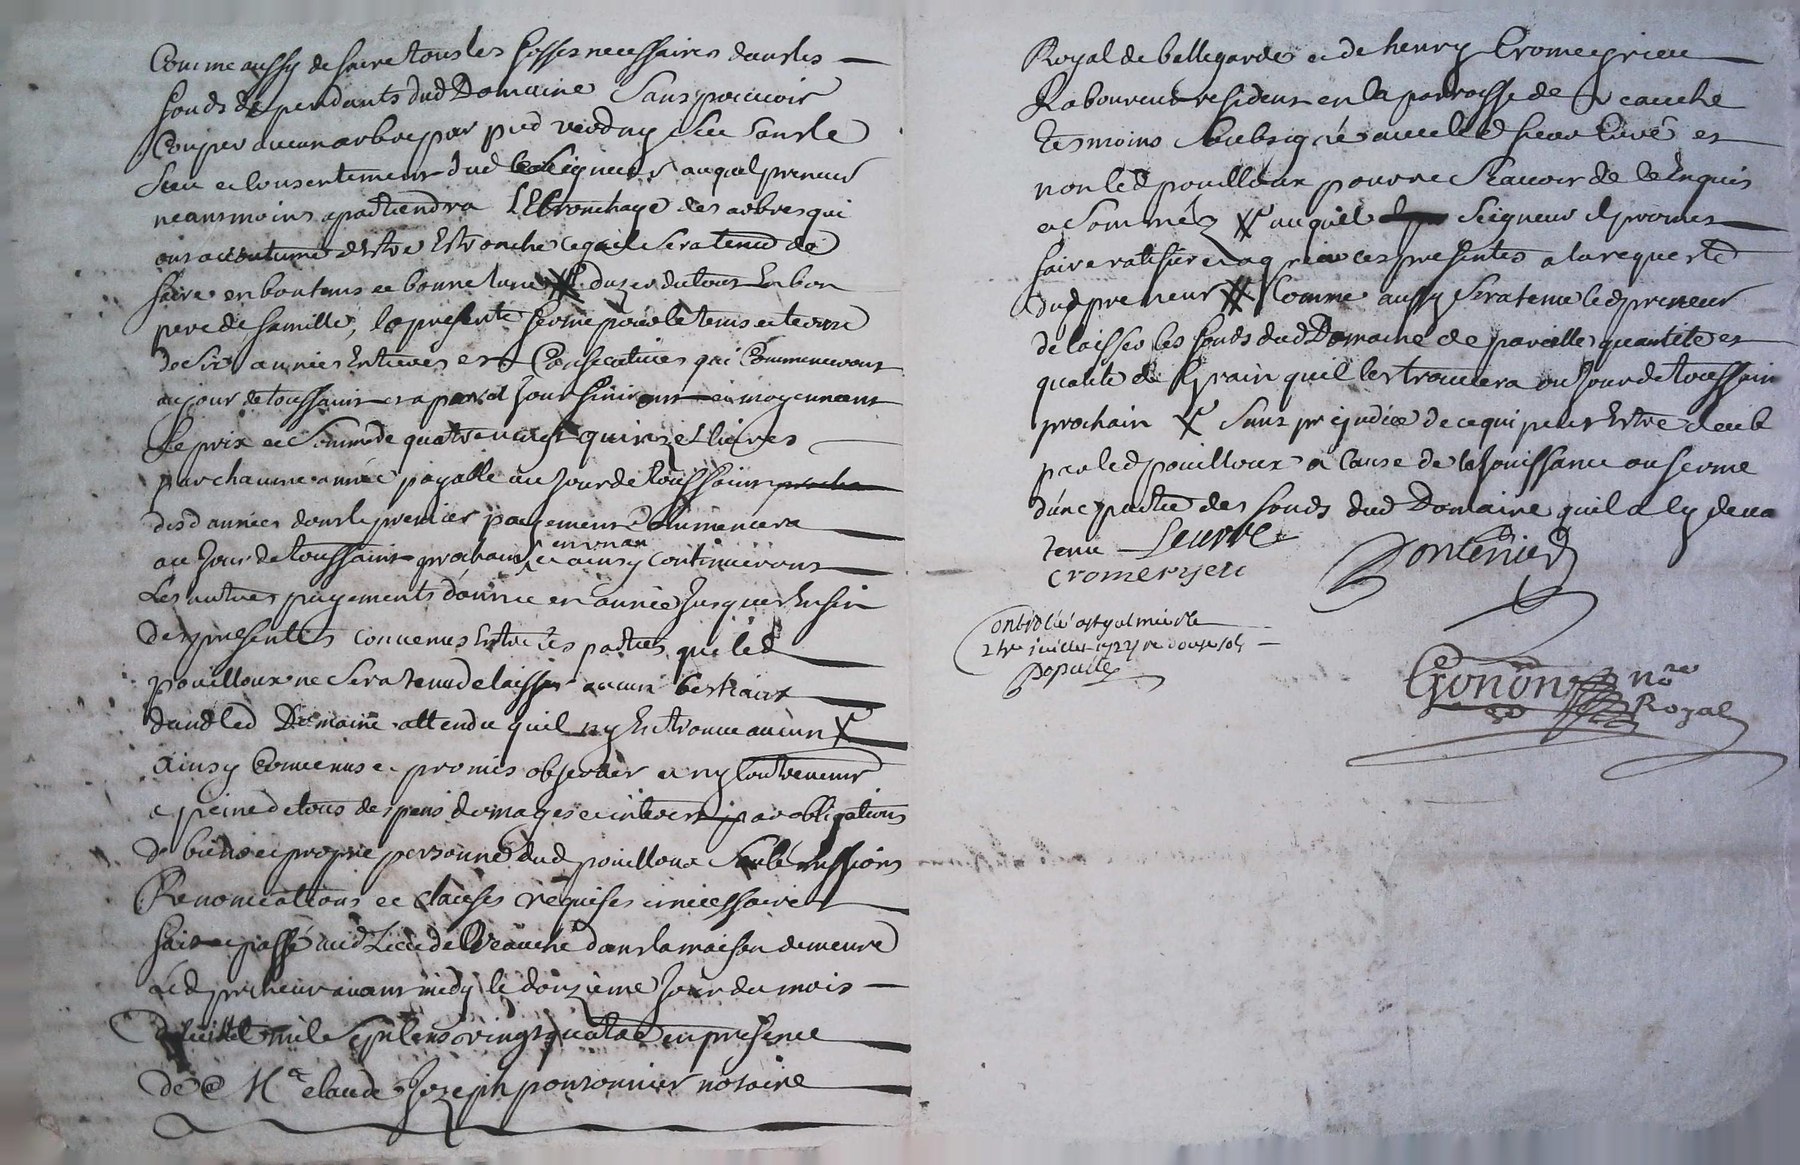 Comme aussy de faire tous les fossés necessaires dans les
fonds dependants dud Domaine Sans pouvoir
Couper aucun arbre par pied verd ny sec sans le
sceu et consentement dud Seigneur auquel preneur
neansmoins apartiendra l'Ebronchage des arbres qui
ont acoutumé destre Estronché ce quil sera tenu de
faire en bon tems et bonne lune duzer du tout En bon
pere de famille, la presente ferme pour le tems et terme
de Six années Entieres et Consecutives qui Commenceront
au jour de toussaint et a pareil Jour finiront et moyennant
Le prix et Somme de quatre vingt quinze Livres
par chacune année payable au Jour de toussaint
desd années dont le premier payement Commencera
au Jour de toussaint prochain en un an et ainsy continueront
Les autres payements d'année en année Jusques En fin
des presentes convenus Entre les parties que led
pouilloux ne sera tenu de laisser aucuns bestiaux
dans led Domaine attendu quil ny En trouve aucun X
Ainsy Convenus et promis observer et ny Contrevenir
a peine de tous despens domages et interest par obligations
de biens et propre personne dud pouilloux Soubmissions
Renonciations et clauses requises et necessaires
fait et passé aud Lieu de Veauche dans la maison demeure
dud preneur avant midy le douzieme Jour du mois
de Juillet mil Sept cens vingt quatre en presence
de Me claude Jozeph ponsonnier notaire
Royal de bellegarde et de henry Cromeyrieu
Laboureur resident en la parroisse de Veauche
tesmoins Soubsigné avec led sieur Curé et
non led pouilloux pour ne Scavoir de ce Enquis
et Sommé X auquel Seigneur il promet
faire ratifier et agreer ces presentes a la requeste
dud preneur X Comme aussy sera tenu led preneur
de laisser les fonds dud Domaine de pareille quantité et
qualité de Grain quil les trouvera au Jour de toussaint
prochain X Sans prejudice de ce qui peut Estre deub
par led pouilloux a Cause de la Jouissance ou ferme
d'une partie des fonds dud Domaine quil a cy devant
tenu
Cromeryeu
Gonon nore
Royal